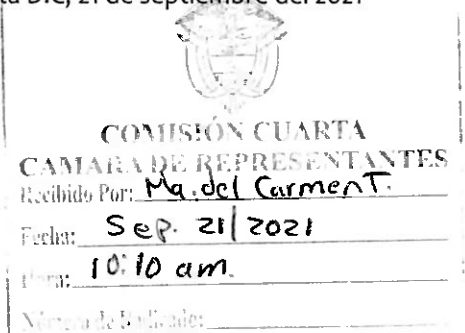 ta D.C, 21 de septiembre del 2021
COMISIÓN CUARTA
CAMARA DE REPRESENTANTES
Recibido Por: Ma. del Carmen T.
Fecha: Sep. 21/2021
Hora: 10:10 am.
Número de Radicado: